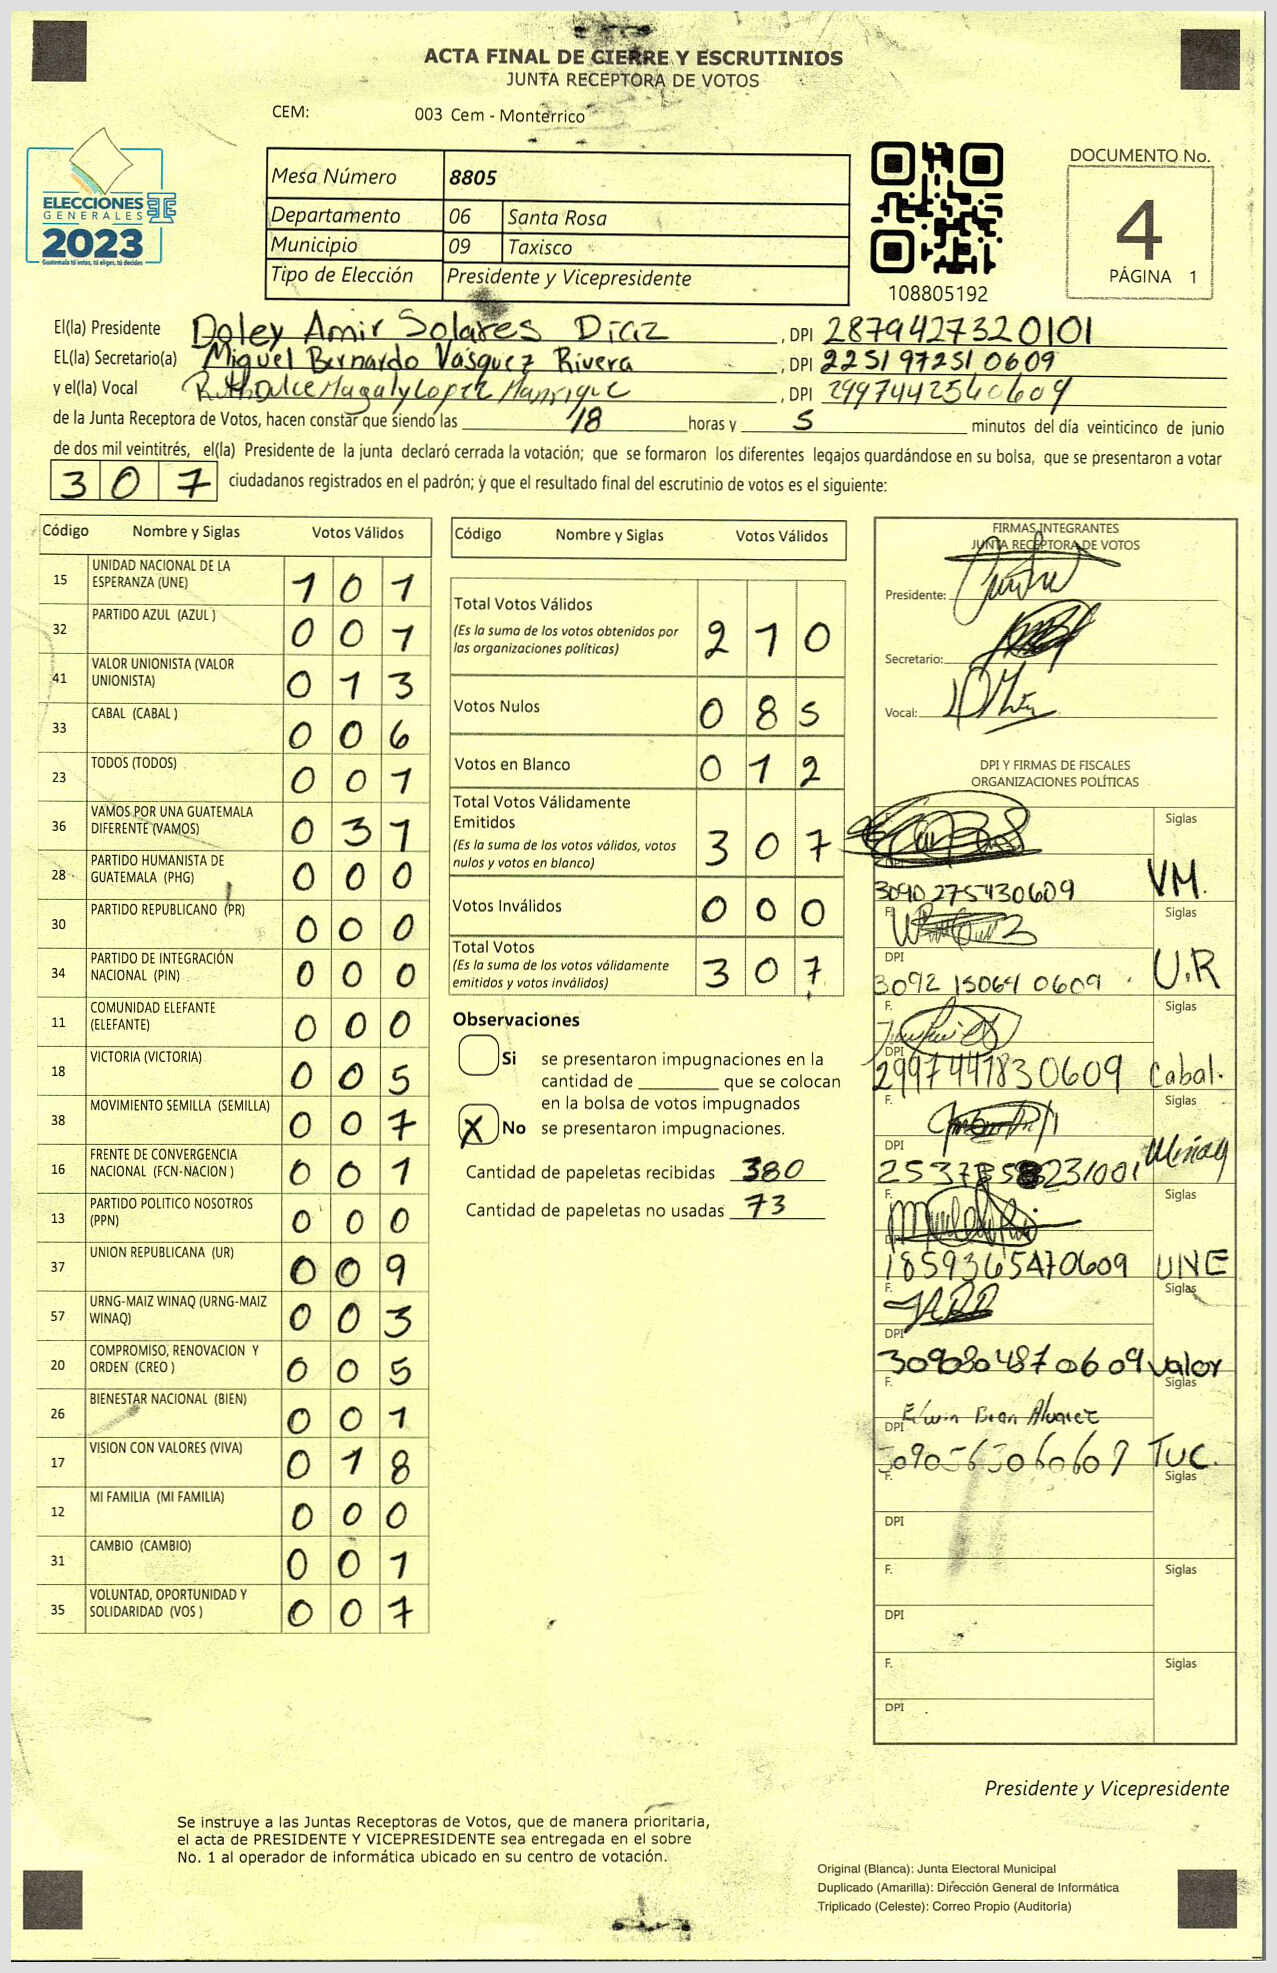 ACTA FINAL DE CIERRE Y ESCRUTINIOS
JUNTA RECEPTORA DE VOTOS
CEM: 003 Cem - Monterrico
ELECCIONES
GENERALES
2023
Guatemala tú votas, tú eliges, tú decides
Mesa Número 8805
Departamento 06 Santa Rosa
Municipio 09 Taxisco
Tipo de Elección Presidente y Vicepresidente
108805192
DOCUMENTO No.
4
PÁGINA 1
El(la) Presidente Doley Amir Solares Díaz , DPI 2879427320101
EL(la) Secretario(a) Miguel Bernardo Vásquez Rivera , DPI 2251972510609
y el(la) Vocal Ruth Dulce Magaly Lopez Manrique , DPI 2997442540609
de la Junta Receptora de Votos, hacen constar que siendo las 18 horas y 5 minutos del día veinticinco de junio
de dos mil veintitrés, el(la) Presidente de la junta declaró cerrada la votación; que se formaron los diferentes legajos guardándose en su bolsa, que se presentaron a votar
307 ciudadanos registrados en el padrón; y que el resultado final del escrutinio de votos es el siguiente:
Código Nombre y Siglas Votos Válidos
15 UNIDAD NACIONAL DE LA ESPERANZA (UNE) 1 0 1
32 PARTIDO AZUL (AZUL ) 0 0 1
41 VALOR UNIONISTA (VALOR UNIONISTA) 0 1 3
33 CABAL (CABAL ) 0 0 6
23 TODOS (TODOS) 0 0 1
36 VAMOS POR UNA GUATEMALA DIFERENTE (VAMOS) 0 3 1
28 PARTIDO HUMANISTA DE GUATEMALA (PHG) 0 0 0
30 PARTIDO REPUBLICANO (PR) 0 0 0
34 PARTIDO DE INTEGRACIÓN NACIONAL (PIN) 0 0 0
11 COMUNIDAD ELEFANTE (ELEFANTE) 0 0 0
18 VICTORIA (VICTORIA) 0 0 5
38 MOVIMIENTO SEMILLA (SEMILLA) 0 0 7
16 FRENTE DE CONVERGENCIA NACIONAL (FCN-NACION ) 0 0 1
13 PARTIDO POLITICO NOSOTROS (PPN) 0 0 0
37 UNION REPUBLICANA (UR) 0 0 9
57 URNG-MAIZ WINAQ (URNG-MAIZ WINAQ) 0 0 3
20 COMPROMISO, RENOVACION Y ORDEN (CREO ) 0 0 5
26 BIENESTAR NACIONAL (BIEN) 0 0 1
17 VISION CON VALORES (VIVA) 0 1 8
12 MI FAMILIA (MI FAMILIA) 0 0 0
31 CAMBIO (CAMBIO) 0 0 1
35 VOLUNTAD, OPORTUNIDAD Y SOLIDARIDAD (VOS ) 0 0 7
Código Nombre y Siglas Votos Válidos
Total Votos Válidos 2 1 0
(Es la suma de los votos obtenidos por
las organizaciones políticas)
Votos Nulos 0 8 5
Votos en Blanco 0 1 2
Total Votos Válidamente
Emitidos 3 0 7
(Es la suma de los votos válidos, votos
nulos y votos en blanco)
Votos Inválidos 0 0 0
Total Votos 3 0 7
(Es la suma de los votos válidamente
emitidos y votos inválidos)
Observaciones
Si se presentaron impugnaciones en la
cantidad de ________ que se colocan
en la bolsa de votos impugnados
X No se presentaron impugnaciones.
Cantidad de papeletas recibidas 380
Cantidad de papeletas no usadas 73
FIRMAS INTEGRANTES
JUNTA RECEPTORA DE VOTOS
Presidente:
Secretario:
Vocal:
DPI Y FIRMAS DE FISCALES
ORGANIZACIONES POLÍTICAS
Siglas
DPI 3090 275430609 VM.
F. Siglas
DPI
3092 15064 0609 U.R
Siglas
DPI
2997441830609 Cabal.
F. Siglas
DPI
F. Siglas
DPI
1859365470609 UNE
F. Siglas
DPI
3090804870609 Valor
F. Siglas
Edwin Bran Alvarez
DPI
TUC.
F. Siglas
DPI
F. Siglas
DPI
F. Siglas
DPI
Presidente y Vicepresidente
Se instruye a las Juntas Receptoras de Votos, que de manera prioritaria,
el acta de PRESIDENTE Y VICEPRESIDENTE sea entregada en el sobre
No. 1 al operador de informática ubicado en su centro de votación.
Original (Blanca): Junta Electoral Municipal
Duplicado (Amarilla): Dirección General de Informática
Triplicado (Celeste): Correo Propio (Auditoría)